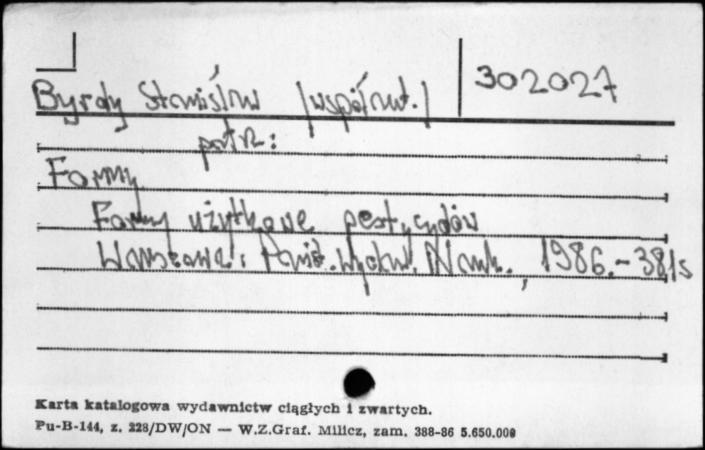 Byrdy Stanisław /współaut./ 302027
patrz:
Formy
Formy użytkowe pestycydów
Warszawa: Państ. Wydaw. Nauk., 1986. - 381s
Karta katalogowa wydawnictw ciągłych i zwartych.
Pu-B-144, z. 228/DW/ON — W.Z.Graf. Milicz, zam. 388-86 5.650.000